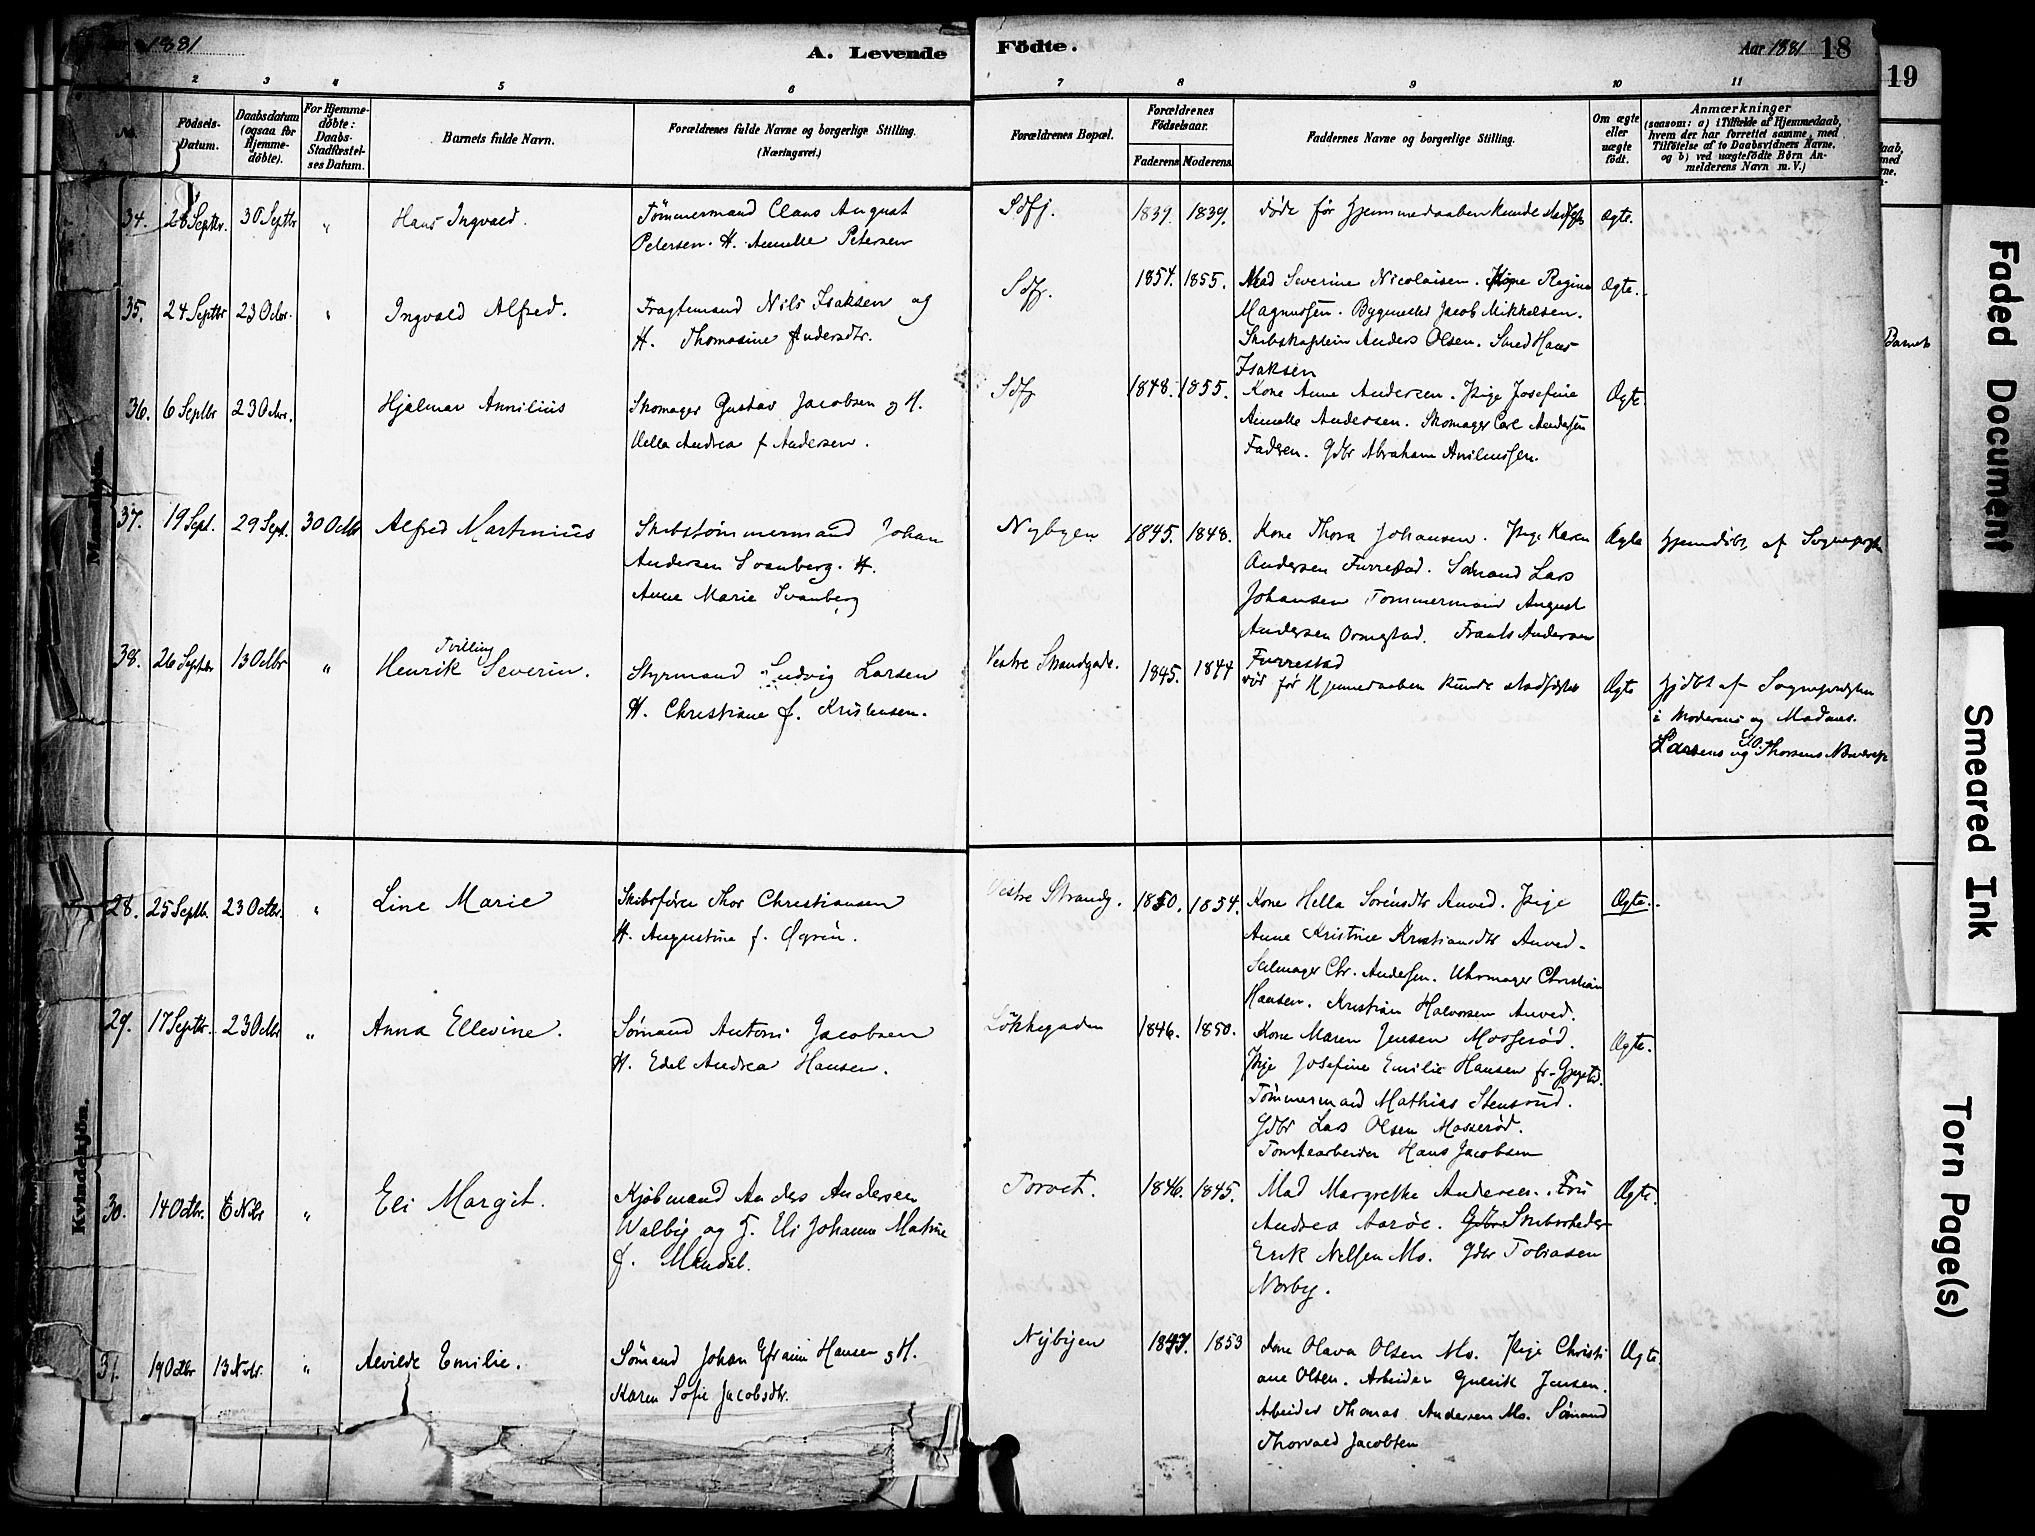 1881
A. Levende
Födte.
Aar 1881
18
19
1 2 3 4 5 6 7 8 9 10 11
No.
Födsels-
Datum.
Daabsdatum
(ogsaa for
Hjemme-
döbte).
For Hjemme-
döbte:
Daabs-
Stadfæstel-
ses Datum.
Barnets fulde Navn.
Forældrenes fulde Navne og borgerlige Stilling.
(Næringsvei.)
Forældrenes Bopæl.
Forældrenes
Födselsaar.
Faderens Moderens
Faddernes Navne og borgerlige Stilling.
Om ægte
eller
uægte
födt.
Anmærkninger
(saasom: a) i Tilfælde af Hjemmedaab,
hvem der har forrettet samme, med
Tilföielse af to Daabsvidners Navne,
og b) ved uægtefödte Börn An-
melderens Navn m. V.)
Mandkjön.
34. 28 Septbr. 30 Septbr "
Hans Ingvald.
Tømmermand Claus August
Petersen. H. Annette Petersen
Sdfj. 1839. 1839.
døde før Hjemmedaaben kunde
Ægte.
35. 24 Septbr 23 Octbr. "
Ingvald Alfred.
Fragtemand Nils Isaksen og
H. Thomasine Andersdtr.
Sdfj. 1854. 1855.
Mad Severine Nicolaisen. Regine
Magnussen. Bygmester Jacob Mikkelsen.
Skibskaptein Anders Olsen. Smed Hans
Isaksen
Ægte.
36. 6 Septbr 23 Octbr.
Hjalmar Annilius
Skomager Gustav Jacobsen og H.
Hella Andrea f. Andersen.
Sdfj 1848. 1855.
Kone Anne Andersen. Pige Josefine
Annette Andersen. Skomager Carl Andersen
Faderen. Gdbr Abraham
Ægte.
37. 19 Sept. 29 Sept. 30 Octbr
Alfred Martinius
Skibstømmermand Johan
Andersen Svanberg. H.
Anne Marie Svanberg
Nybyen 1845. 1848.
Kone Thora Johansen. Pige Karen
Andersen Furrestad. Sømand Lars
Johansen Tømmermand August
Andersen Ormestad. Frants Andersen
Furrestad
Ægte
Hjemdøbt af
38. 26 Septbr 13 Octbr "
Tvilling
Henrik Severin.
Styrmand Ludvig Larsen
H. Christiane f. Kristensen.
Vestre Strandgade. 1845. 1844
død før Hjemmedaaben kunde stadfæstes
Ægte
Hjdbt af Sognepræsten
i Moderens og Madames
Larsens og Thorsens
Kvindekjön.
28. 25 Septbr. 23 Octbr. "
Line Marie
Skibsfører Thor Christiansen
H. Augustine f. Øgren.
Vestre Strandg. 1850. 1854.
Kone Hella Sørensdtr Anved. Pige
Anne Kristine Kristiansdtr Anved-
Seilmager Chr. Andersen. Uhrmager Christian
Hansen. Kristian Halvorsen Anved.
Ægte.
29. 17 Septbr. 23 Octbr "
Anna Ellevine.
Sømand Anton Jacobsen
H. Edel Andrea Hansen.
Løkkegaden 1846. 1850.
Kone Maren Jensen Mosserød.
Pige Josefine Emilie Hansen
Tømmermand Mathias Stensrud.
Gdbr Lars Olsen Mosserød.
Tomtearbeider Hans Jacobsen
Ægte.
30. 14 Octbr. 6 Nvbr "
Eli Margit.
Kjøbmand Anders Andersen
Walby og H. Eli Johanne Mathine
f.
Torvet. 1846. 1845.
Mad Margrethe Andersen. Fru
Andrea Aarøe.
Erik Nilsen Ms. Gdbr Tobiasen
Norby.
Ægte.
31. 19 Octbr 13 Nvbr. "
Alvilde Emilie.
Sømand Johan Efraim Hansen og H.
Karen Sofie Jacobsdtr.
Nybyen 1847. 1853
Kone Olava Olsen Ms. Pige Christi
ane Olsen. Arbeider Jensen.
Arbeider Thomas Andersen Ms. Sømand
Thorvald Jacobsen
Ægte.
Faded Document
Smeared Ink
Torn Page(s)